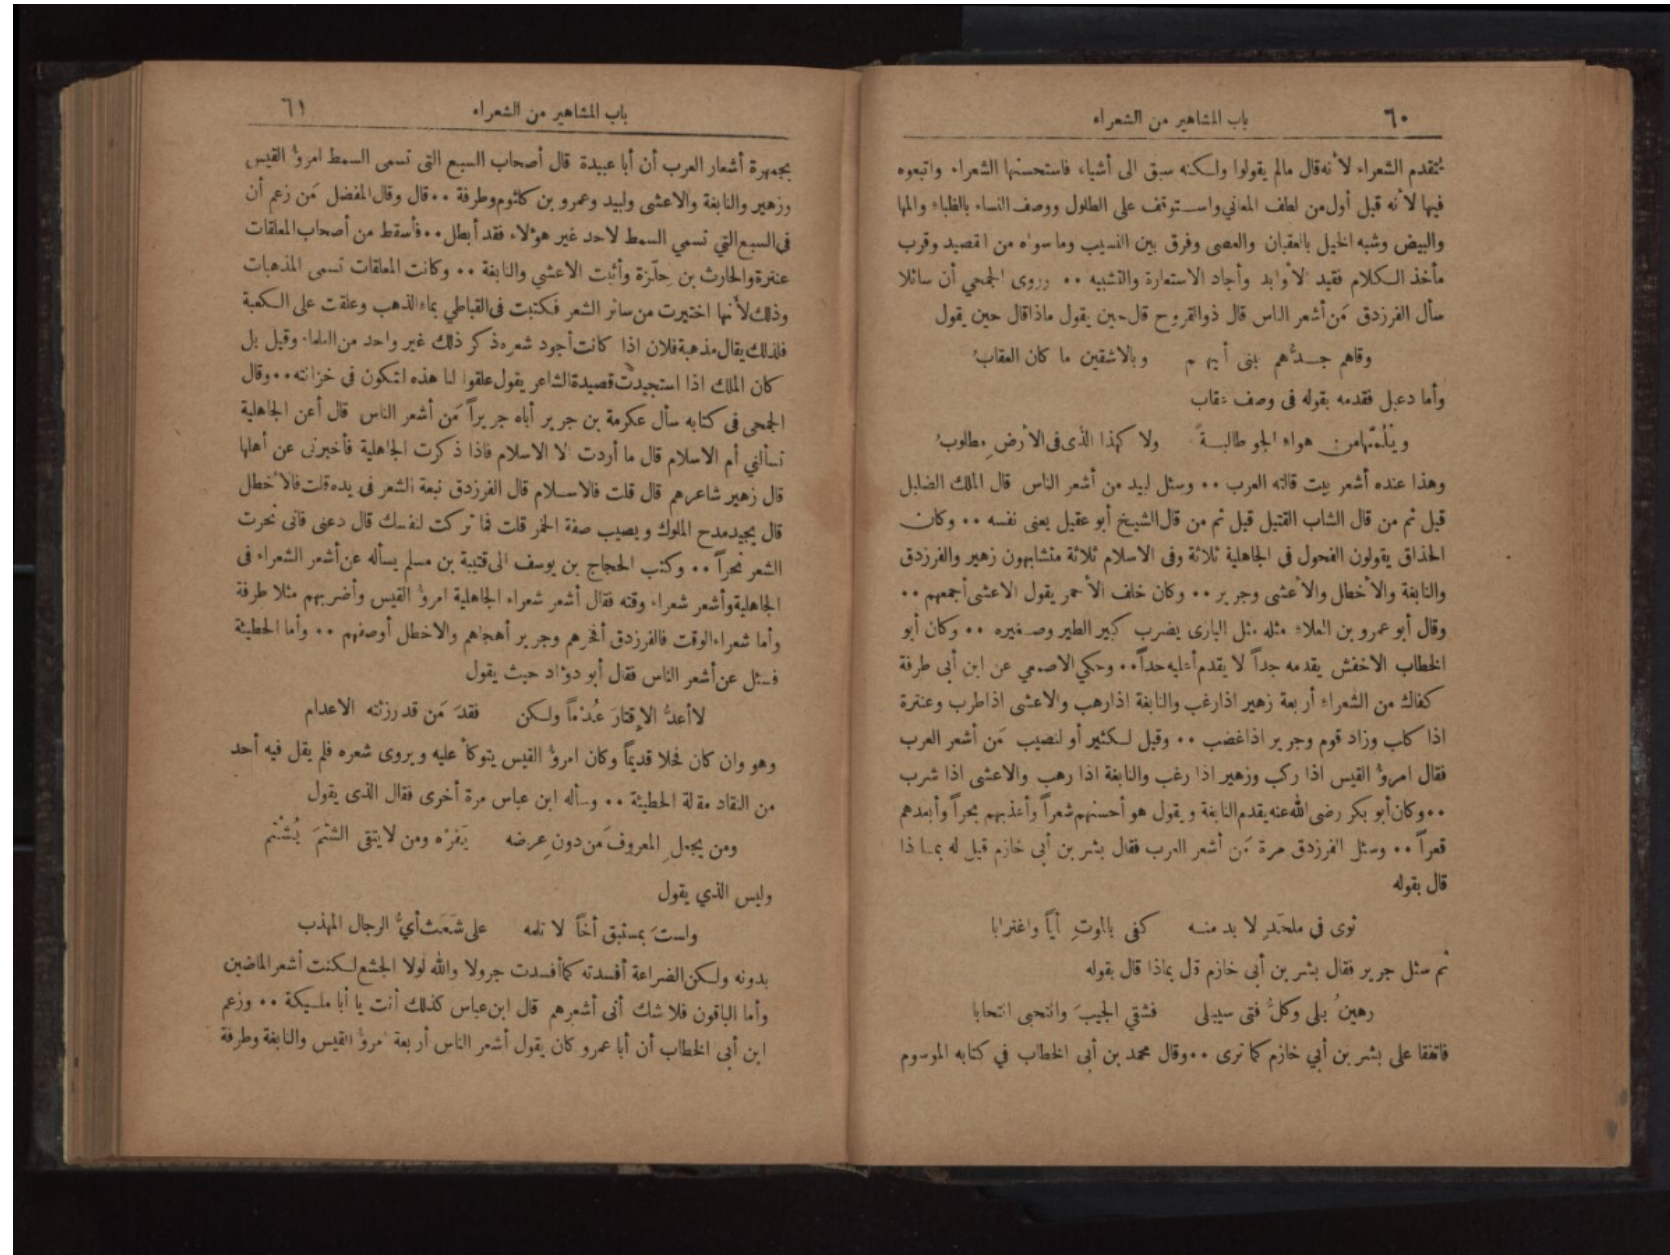 ٦٠
باب المشاهير من الشعراء
يتقدم الشعراء لأنه قال مالم يقولوا ولكنه سبق الى أشياء فاستحسنها الشعراء واتبعوه
فيها لأنه قيل أول من لطف المعاني واستوقف على الطلول ووصف النساء بالظباء والمها
والبيض وشبه الخيل بالعقبان والعصى وفرق بين النسيب وما سواه من القصيد وقرب
مأخذ الكلام فقيد الأوابد وأجاد الاستعارة والتشبيه ٠٠ وروى الجمحي أن سائلا
سأل الفرزدق مَن أشعر الناس قال ذو القروح قال حين يقول ماذا قال حين يقول
وقاهم جدُّهم ببنى أبيهم وبالاشقين ما كان العقابُ
وأما دعبل فقدمه بقوله فى وصف عقاب
ويلُمّها من هواء الجو طالبةً ولا كهذا الذى فى الأرضِ مطلوبُ
وهذا عنده أشعر بيت قالته العرب ٠٠ وسئل لبيد من أشعر الناس قال الملك الضليل
قيل ثم من قال الشاب القتيل قيل ثم من قال الشيخ أبو عقيل يعنى نفسه ٠٠ وكان
الحذاق يقولون الفحول فى الجاهلية ثلاثة وفى الاسلام ثلاثة متشابهون زهير والفرزدق
والنابغة والأخطل والأعشى وجرير ٠٠ وكان خلف الأحمر يقول الاعشى أجمعهم ٠٠
وقال أبو عمرو بن العلاء مثله مثل البازى يضرب كبير الطير وصغيره ٠٠ وكان أبو
الخطاب الاخفش يقدمه جداً لا يقدم أعليه حداً ٠٠ وحكي الاصمعي عن ابن أبى طرفة
كفاك من الشعراء أربعة زهير اذا رغب والنابغة اذا رهب والاعشى اذا طرب وعنترة
اذا كلب وزاد قوم وجرير اذا غضب ٠٠ وقيل لكثير أو لنصيب مَن أشعر العرب
فقال امرؤُ القيس اذا ركب وزهير اذا رغب والنابغة اذا رهب والاعشى اذا شرب
٠٠ وكان أبو بكر رضى الله عنه يقدم النابغة ويقول هو أحسنهم شعراً وأعذبهم بحراً وأبعدهم
قعراً ٠٠ وسئل الفرزدق مرة مَن أشعر العرب فقال بشر بن أبى خازم قيل له بماذا
قال بقوله
ثوى في ملحَدٍ لا بد منه كفى بالموتِ نأياً واغترابا
ثم سئل جرير فقال بشر بن أبى خازم قل بماذا قال بقوله
رهينُ بلى وكلُّ فتى سيبلى فشقي الجيبَ وانتحبى انتحابا
فاتفقا على بشر بن أبي خازم كما ترى ٠٠ وقال محمد بن أبى الخطاب في كتابه الموسوم
باب المشاهير من الشعراء
٦١
بجمهرة أشعار العرب أن أبا عبيدة قال أصحاب السبع التى تسمى السمط امرؤُ القيس
وزهير والنابغة والاعشى ولبيد وعمرو بن كلثوم وطرفة ٠٠ قال وقال المفضل مَن زعم أن
في السبع التي تسمي السمط لاحد غير هؤلاء فقد أبطل ٠٠ فأسقط من أصحاب المعلقات
عنترة والحارث بن حِلّزة وأثبت الاعشي والنابغة ٠٠ وكانت المعلقات تسمى المذهبات
وذلك لأنها اختيرت من سائر الشعر فكتبت فى القباطي بماء الذهب وعلقت على الكعبة
فلذلك يقال مذهبة فلان اذا كانت أجود شعره ذكر ذلك غير واحد من العلماء وقيل بل
كان الملك اذا استجيدت قصيدة الشاعر يقول علقوا لنا هذه لتكون في خزانته ٠٠ وقال
الجمحى فى كتابه سأل عكرمة بن جرير أباه جريراً مَن أشعر الناس قال أعن الجاهلية
تسألني أم الاسلام قال ما أردت الا الاسلام فاذا ذكرت الجاهلية فأخبرنى عن أهلها
قال زهير شاعرهم قال قلت فالاسلام قال الفرزدق نبعة الشعر فى يده قلت فالأخطل
قال يجيد مدح الملوك ويصيب صفة الخمر قلت فما تركت لنفسك قال دعنى فانى نحرت
الشعر نحراً ٠٠ وكتب الحجاج بن يوسف الى قتيبة بن مسلم يسأله عن أشعر الشعراء فى
الجاهلية وأشعر شعراء وقته فقال أشعر شعراء الجاهلية امرؤُ القيس وأضربهم مثلا طرفة
وأما شعراء الوقت فالفرزدق أفخرهم وجرير أهجاهم والاخطل أوصفهم ٠٠ وأما الحطيئة
فسئل عن أشعر الناس فقال أبو دؤاد حيث يقول
لا أعدُّ الإقتارَ عُدْماً ولكن فقدَ مَن قد رزئته الاعدام
وهو وان كان فحلا قديماً وكان امرؤُ القيس يتوكأ عليه ويروى شعره فلم يقل فيه أحد
من النقاد مقالة الحطيئة ٠٠ وسأله ابن عباس مرة أخرى فقال الذى يقول
ومن يجعلِ المعروفَ من دون عِرضه يَفرْه ومن لا يتقى الشتمَ يُشْتم
وليس الذي يقول
ولستَ بمستبق أخاً لا تلمه على شَعَثٍ أيُّ الرجال المهذب
بدونه ولكن الضراعة أفسدته كما أفسدت جرولا والله لولا الجشع لكنت أشعر الماضين
وأما الباقون فلا شك أنى أشعرهم قال ابن عباس كذلك أنت يا أبا مليكة ٠٠ وزعم
ابن أبى الخطاب أن أبا عمرو كان يقول أشعر الناس أربعة امرؤُ القيس والنابغة وطرفة